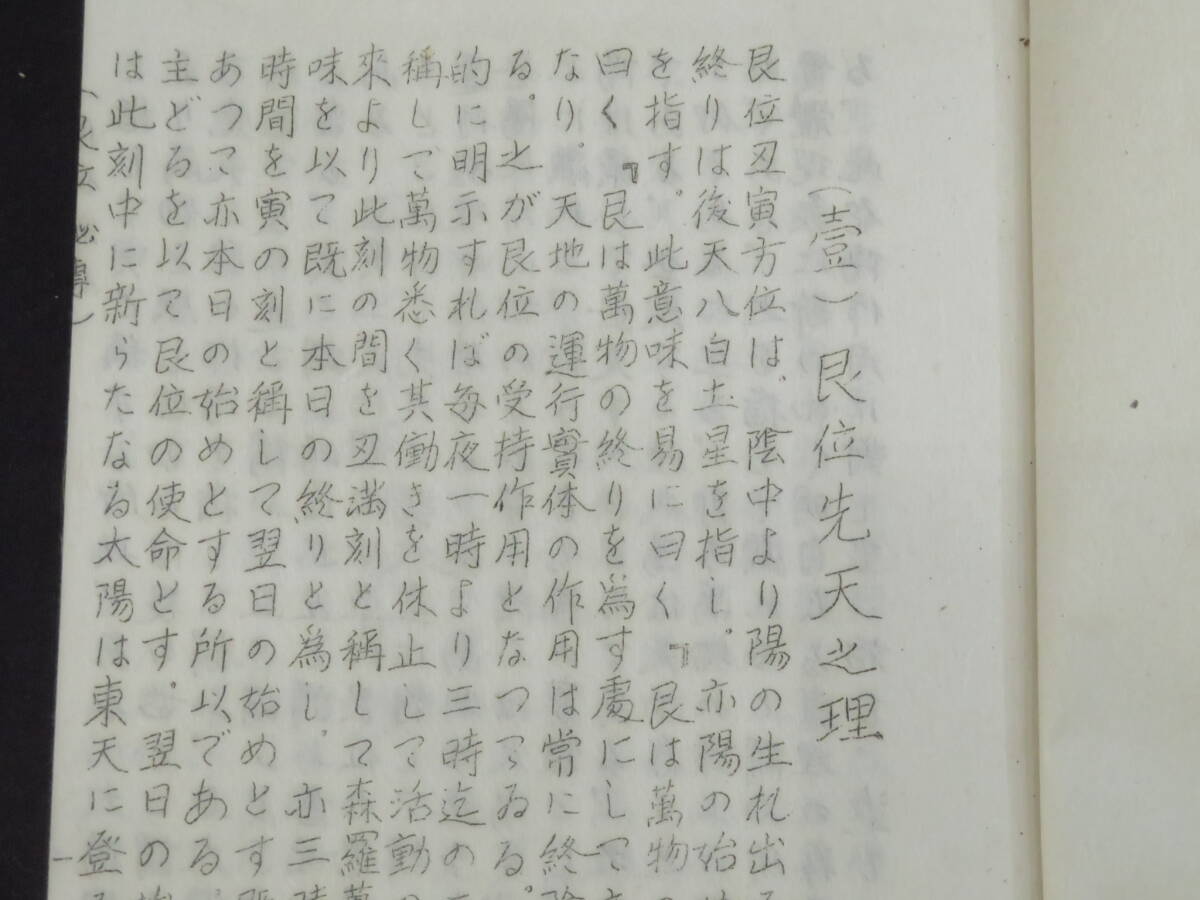 （壹）艮位先天之理
艮位丑寅方位は、陰中より陽の生れ出る
終りは後天八白土星を指し。亦陽の始
を指す。此意味を易に曰く『艮は萬物
曰く『艮は萬物の終りを為す處にして
なり。天地の運行實体の作用は常に終
る。之が艮位の受持作用となつてゐる。
的に明示すれば毎夜一時より三時迄の
稱して萬物悉く其働きを休止して活動
來より此刻の間を丑満刻と稱して森羅萬
味を以て既に本日の終りと為し。亦三時
時間を寅の刻と稱して翌日の始めとす
あつて亦本日の始めとする所以である。
主どるを以て艮位の使命とす。翌日の
は此刻中に新らたなる太陽は東天に登る